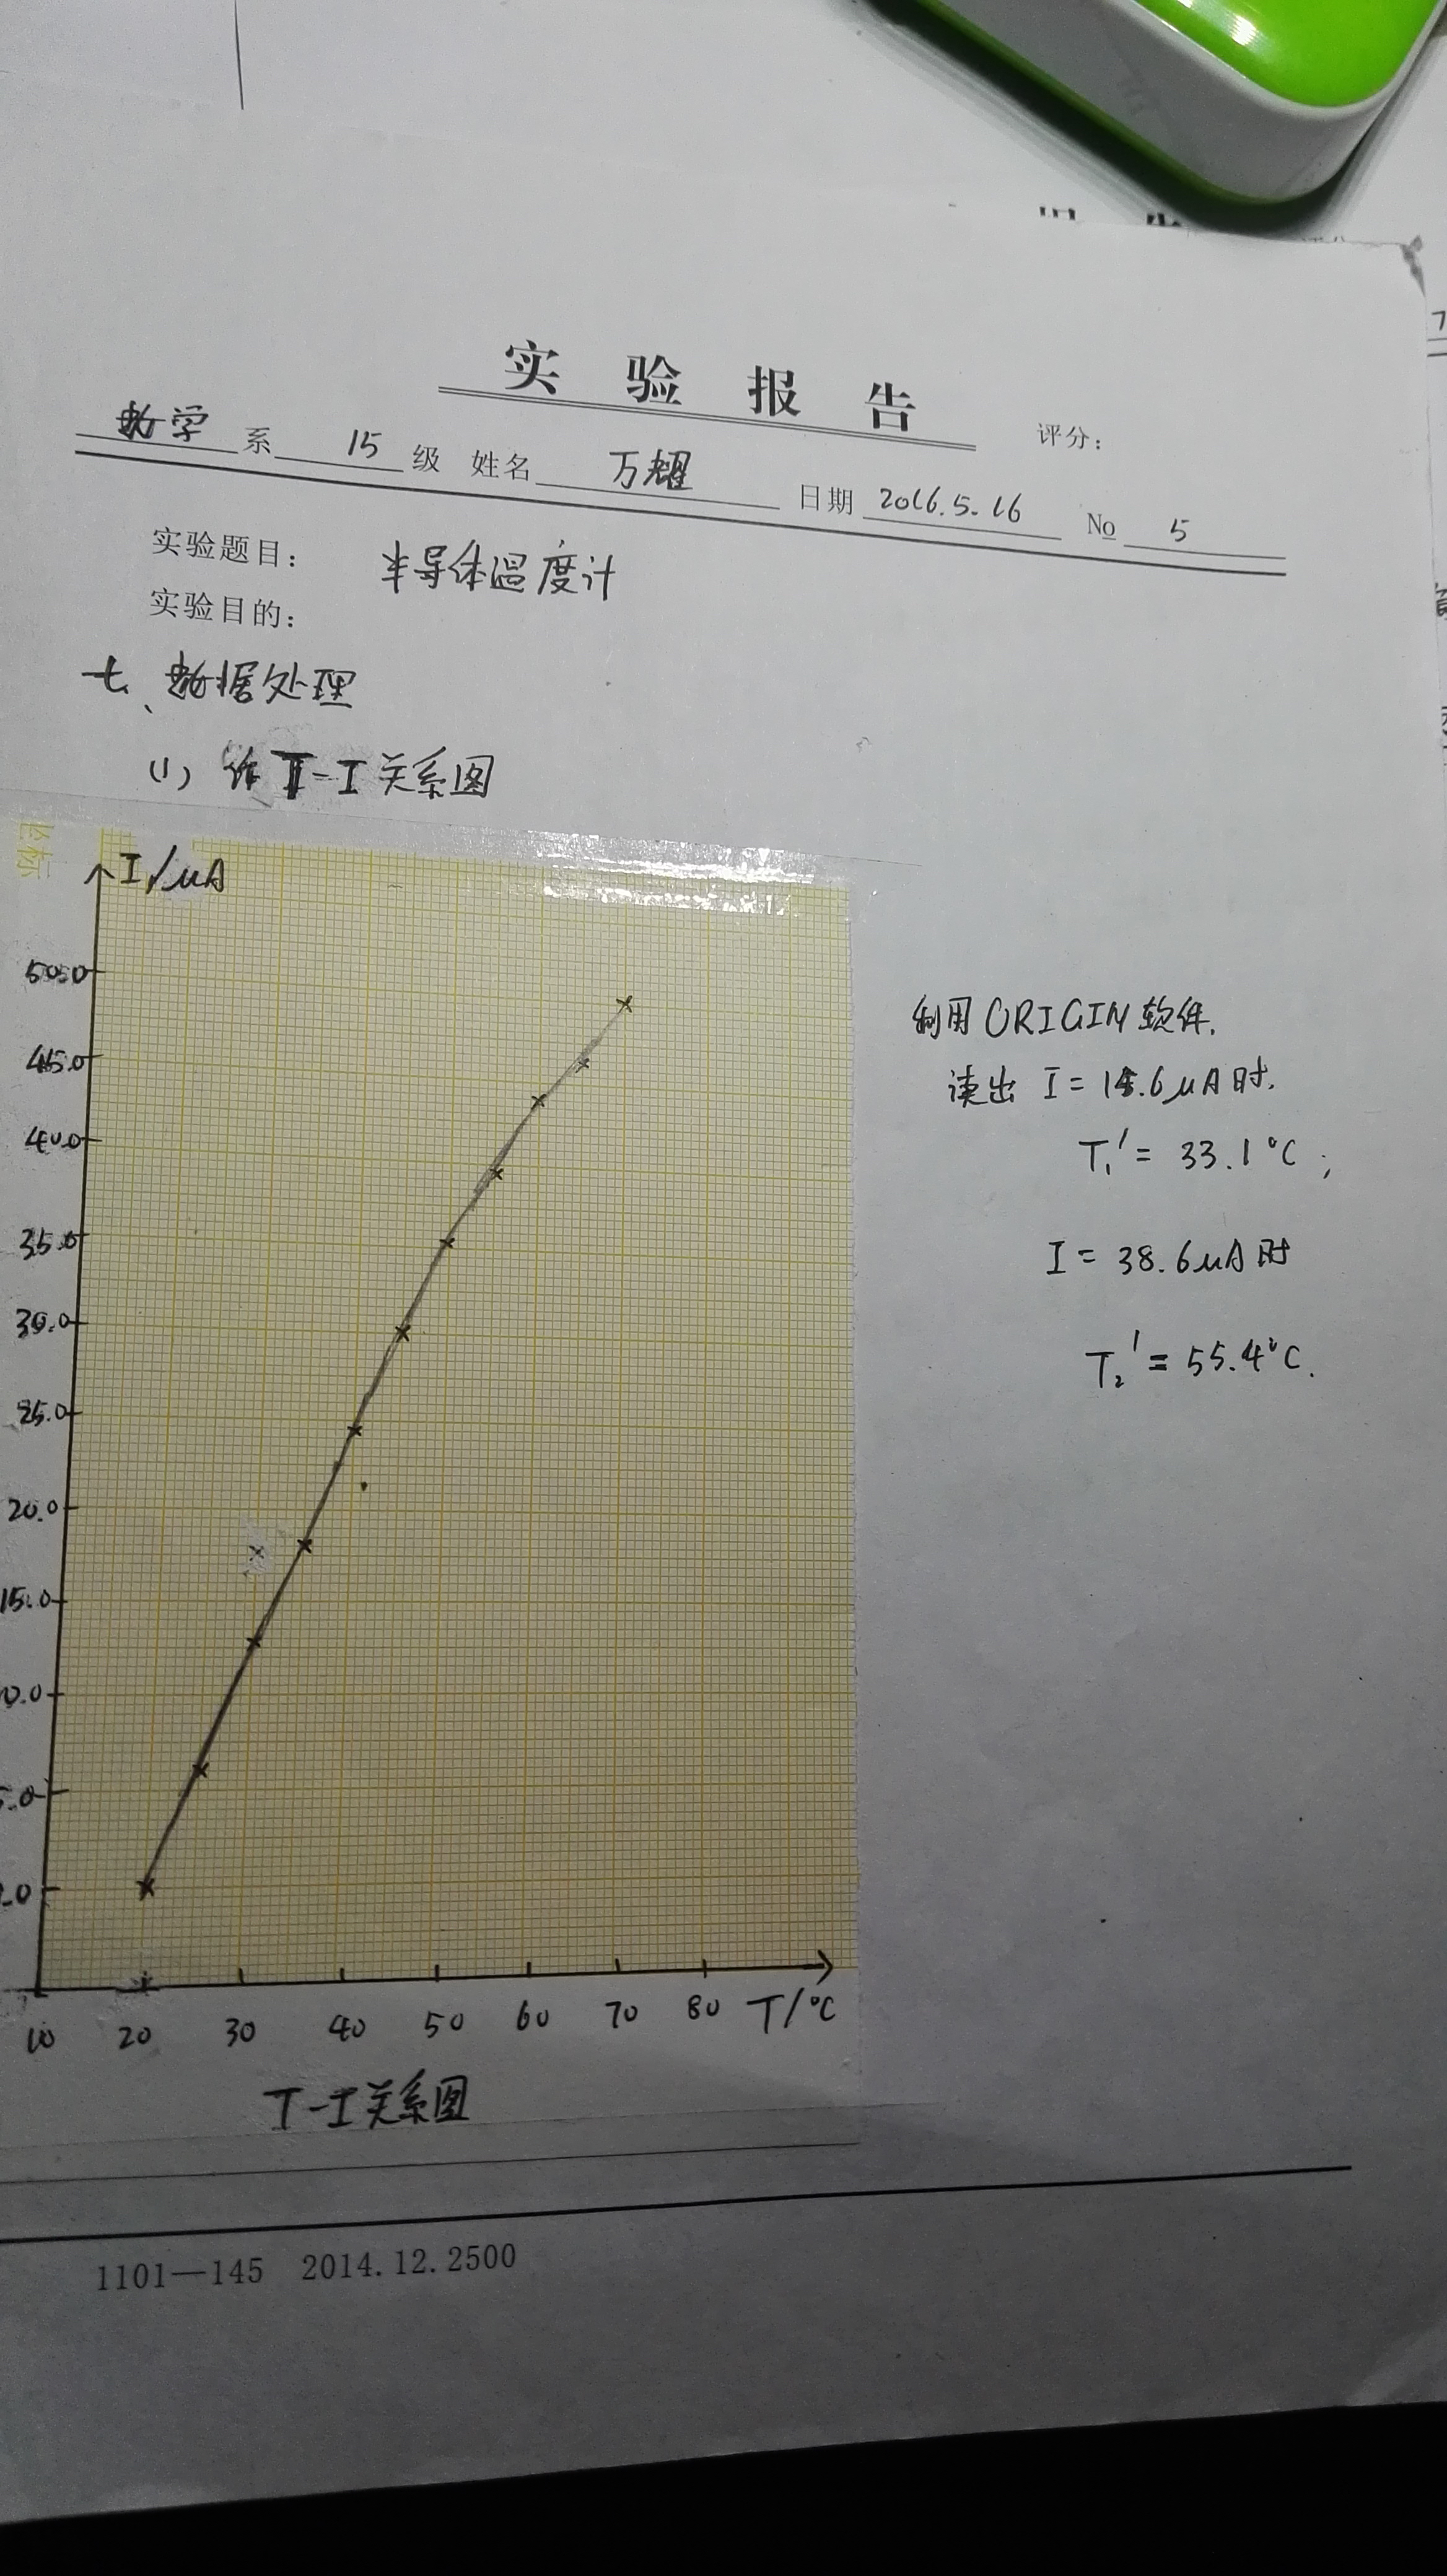 实验报告
评分:
数学系 15级 姓名 万耀 日期 2016.5.16 No 5
实验题目: 半导体温度计
实验目的:
七、数据处理
(1) 作T-I关系图
I/μA
50.0
45.0
40.0
35.0
30.0
25.0
20.0
15.0
0.0
5.0
.0
10 20 30 40 50 60 70 80 T/°C
T-I关系图
利用ORIGIN软件.
读出 I = 15.6μA时.
T₁' = 33.1°C;
I = 38.6μA时
T₂' = 55.4°C.
1101—145 2014.12.2500